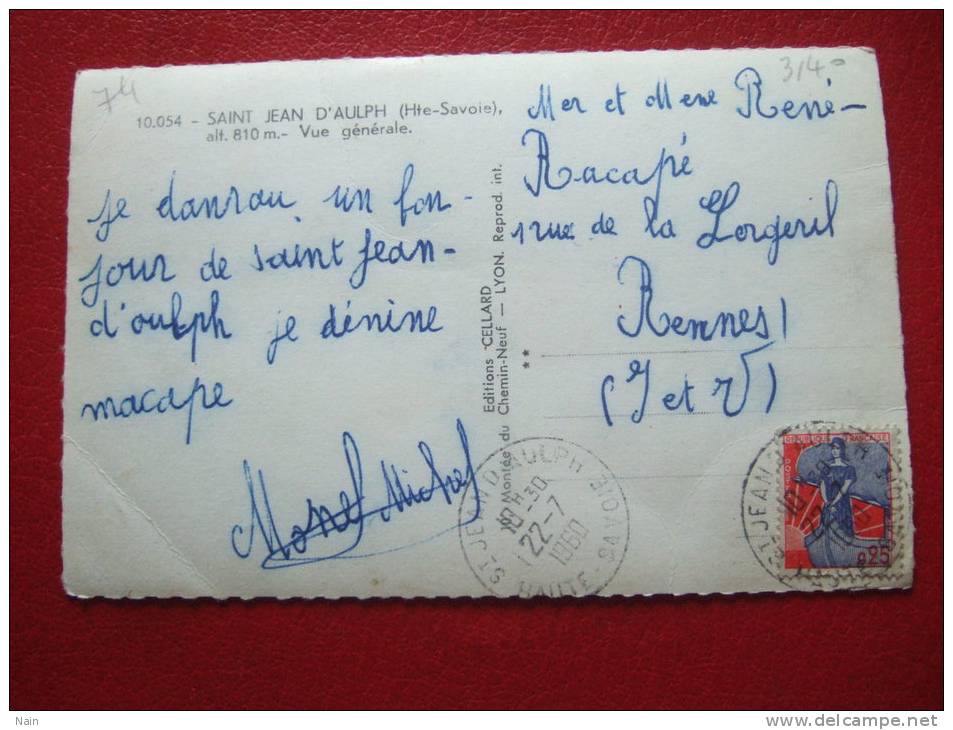 74
314
10.054 - SAINT JEAN D'AULPH (Hte-Savoie),
alt. 810 m.- Vue générale.
je danrou un fon-
jour de saint jean-
d'oulph je dénine
macape
Monet Michel
Editions CELLARD
Montée du Chemin-Neuf — LYON. Reprod. int.
**
Mer et Meme René-
Racapé
1 rue de la Lorgeril
Rennes
(I et V)
ST-JEAN D'AULPH
18H-30
22-7
1960
HAUTE-SAVOIE
REPUBLIQUE FRANCAISE
0,25
Nain
delcampe.net